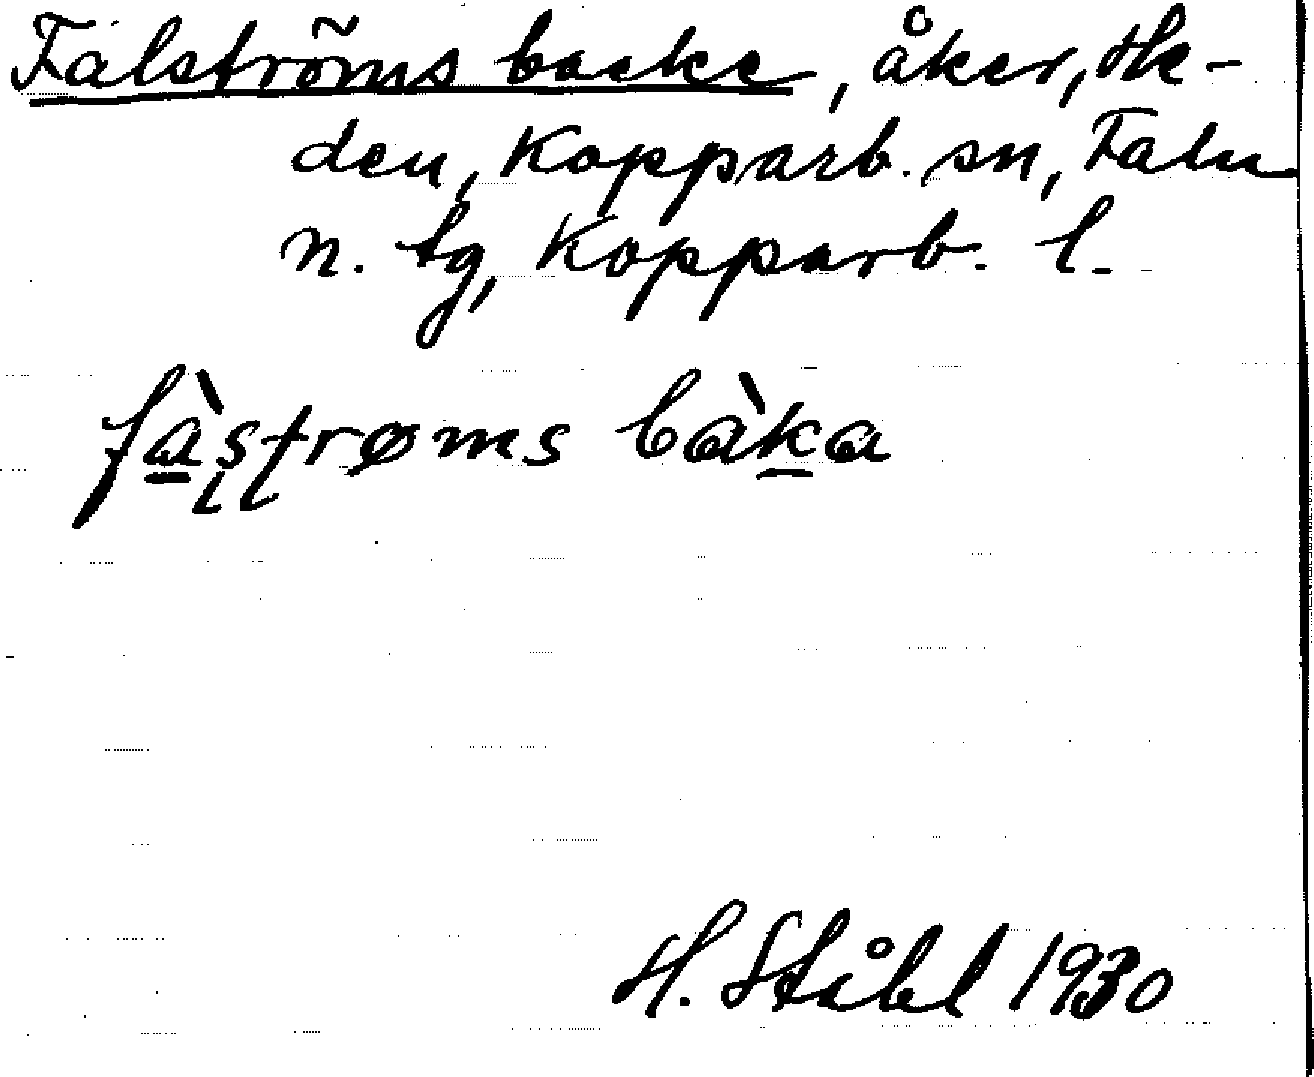 Falströms backe, åker, He-
den, Kopparb. sn, Falu
n. tg, Kopparb. l.
fàʂʈrøms bàka
H. Ståhl 1930